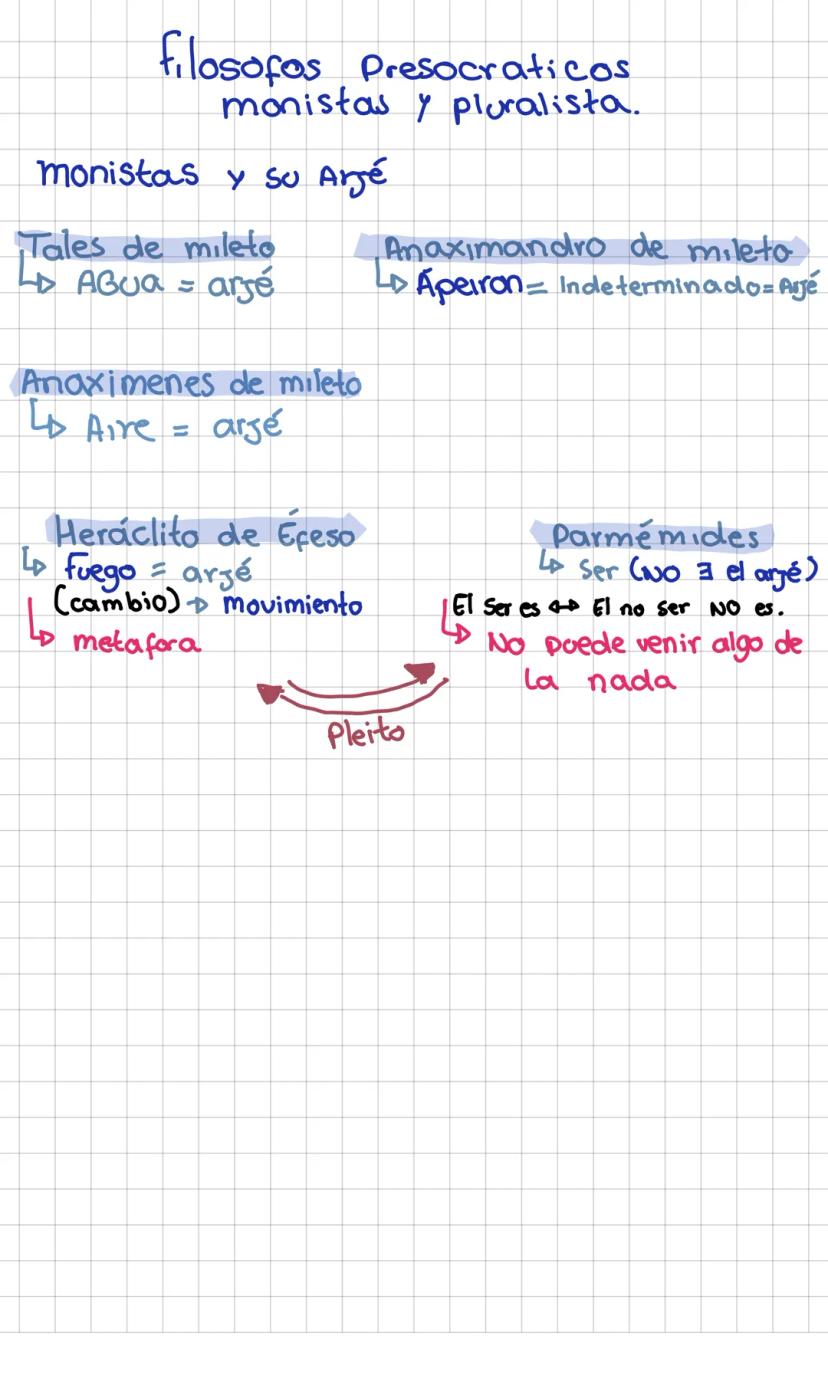 filosofos Presocraticos
monistas y pluralista.
monistas y su Arjé
Tales de mileto
↳ AGUA = arjé
Anaximandro de mileto
↳ Ápeiron = Indeterminado = Arjé
Anaximenes de mileto
↳ Aire = arjé
Heráclito de Éfeso
↳ fuego = arjé
(cambio) → movimiento
↳ metafora
Parmémides
↳ Ser (NO ∃ el arjé)
El Ser es ↔ El no ser NO es.
↳ No puede venir algo de
la nada
Pleito